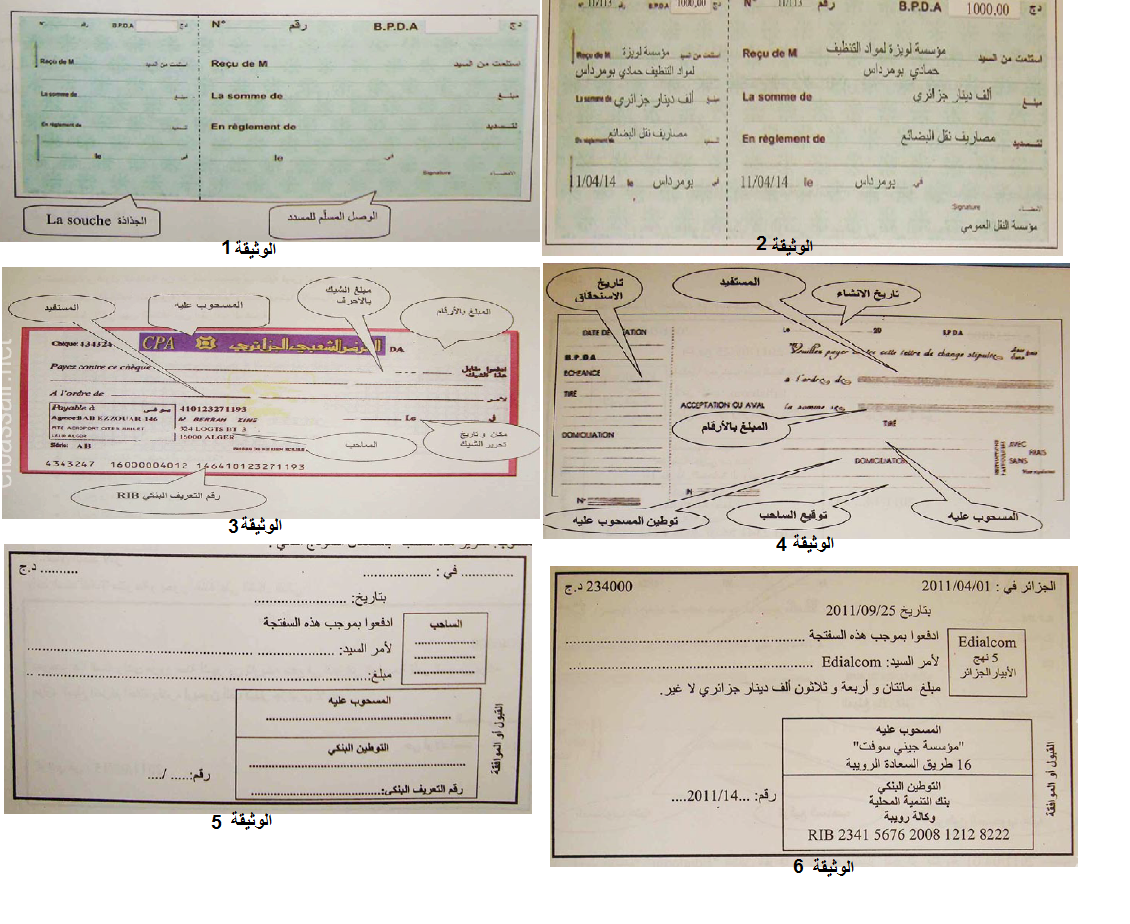 N° رقم B.P.D.A دج
Reçu de M استلمت من السيد
La somme de مبلغ
En règlement de لتسديد
le في
Signature الإمضاء
N° رقم B.P.D.A دج
Reçu de M استلمت من السيد
La somme de مبلغ
En règlement de لتسديد
le في
الجذاذة La souche
الوصل المسلّم للمسدد
الوثيقة 1
N° 11/113 رقم B.P.D.A 1000,00 دج
Reçu de M مؤسسة لويزة لمواد التنظيف استلمت من السيد
حمادي بومرداس
La somme de ألف دينار جزائري مبلغ
En règlement de مصاريف نقل البضائع لتسديد
11/04/14 le بومرداس في
Signature الإمضاء
مؤسسة النقل العمومي
N° 11/113 رقم B.P.D.A 1000,00 دج
Reçu de M مؤسسة لويزة استلمت من السيد
لمواد التنظيف حمادي بومرداس
La somme de ألف دينار جزائري مبلغ
En règlement de مصاريف نقل البضائع لتسديد
11/04/14 le بومرداس في
الوثيقة 2
المستفيد
المسحوب عليه
مبلغ الشيك بالأحرف
المبلغ بالأرقام
CPA القرض الشعبي الجزائري DA
Payez contre ce chèque ادفعوا مقابل هذا الشيك
A l'ordre de لأمر
Payable à
410123271193
Agence:BAB EZZOUAR 146
Le في
324 LOGTS BT 3
15000 ALGER
Série: AB
الساحب
مكان و تاريخ تحرير الشيك
4343247 16000004012 146410123271193
رقم التعريف البنكي RIB
الوثيقة 3
تاريخ الاستحقاق
المستفيد
تاريخ الانشاء
B.P.D.A
ECHEANCE
TIRÉ
DOMICILIATION
N°
Le 20 B.P.D.A
Veuillez payer contre cette lettre de change stipulée
à l'ordre de
ACCEPTATION OU AVAL
la somme de
المبلغ بالأرقام
TIRÉ
DOMICILIATION
AVEC
FRAIS
SANS
توطين المسحوب عليه
توقيع الساحب
المسحوب عليه
الوثيقة 4
............. في : ................. .......... د.ج
بتاريخ: ......................
الساحب
ادفعوا بموجب هذه السفتجة
لأمر السيد: ......................
مبلغ: ......................
المسحوب عليه
التوطين البنكي
رقم التعريف البنكي:......................
القبول أو الموافقة
رقم:..... /....
الوثيقة 5
الجزائر في : 2011/04/01 234000 د.ج
بتاريخ 2011/09/25
Edialcom
5 نهج
الأبيار الجزائر
ادفعوا بموجب هذه السفتجة ......................
لأمر السيد: Edialcom ......................
مبلغ مائتان و أربعة و ثلاثون ألف دينار جزائري لا غير.
المسحوب عليه
"مؤسسة جيني سوفت"
16 طريق السعادة الرويبة
التوطين البنكي
بنك التنمية المحلية
وكالة رويبة
RIB 2341 5676 2008 1212 8222
القبول أو الموافقة
رقم: ...2011/14....
الوثيقة 6